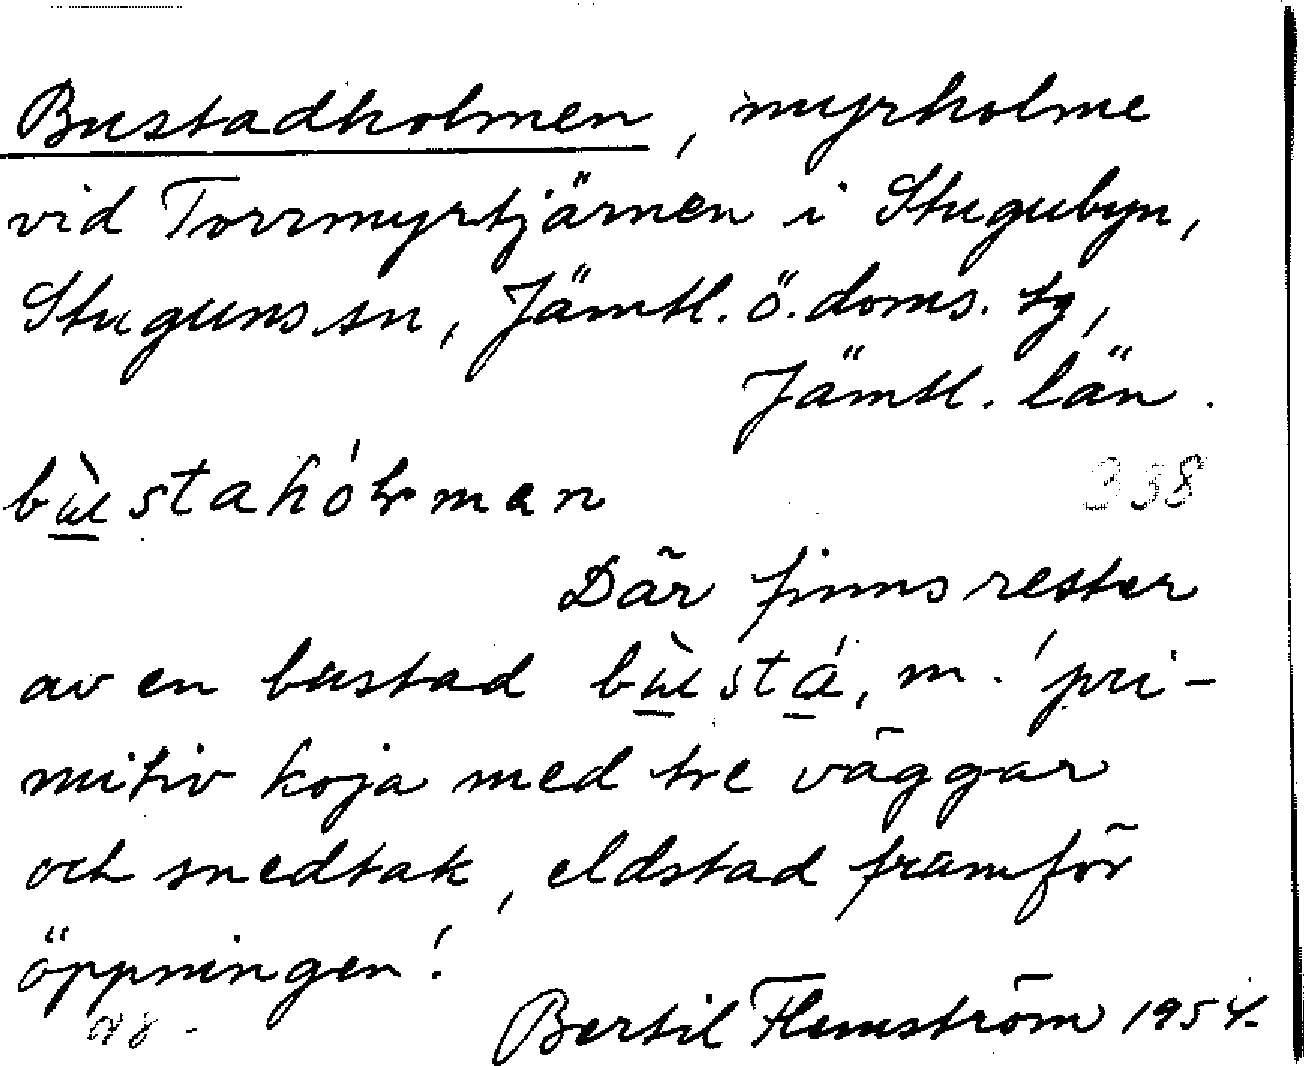 Bustadholmen, myrholme
vid Torrmyrtjärnen i Stugubyn,
Stuguns sn, Jämtl. ö. doms. tg,
Jämtl. län.
bὼstahóLman
338
Där finns rester
av en bustad bὼstá, m. 'pri-
mitiv koja med tre väggar
och snedtak, eldstad framför
öppningen'.
Bertil Flemström 1954.